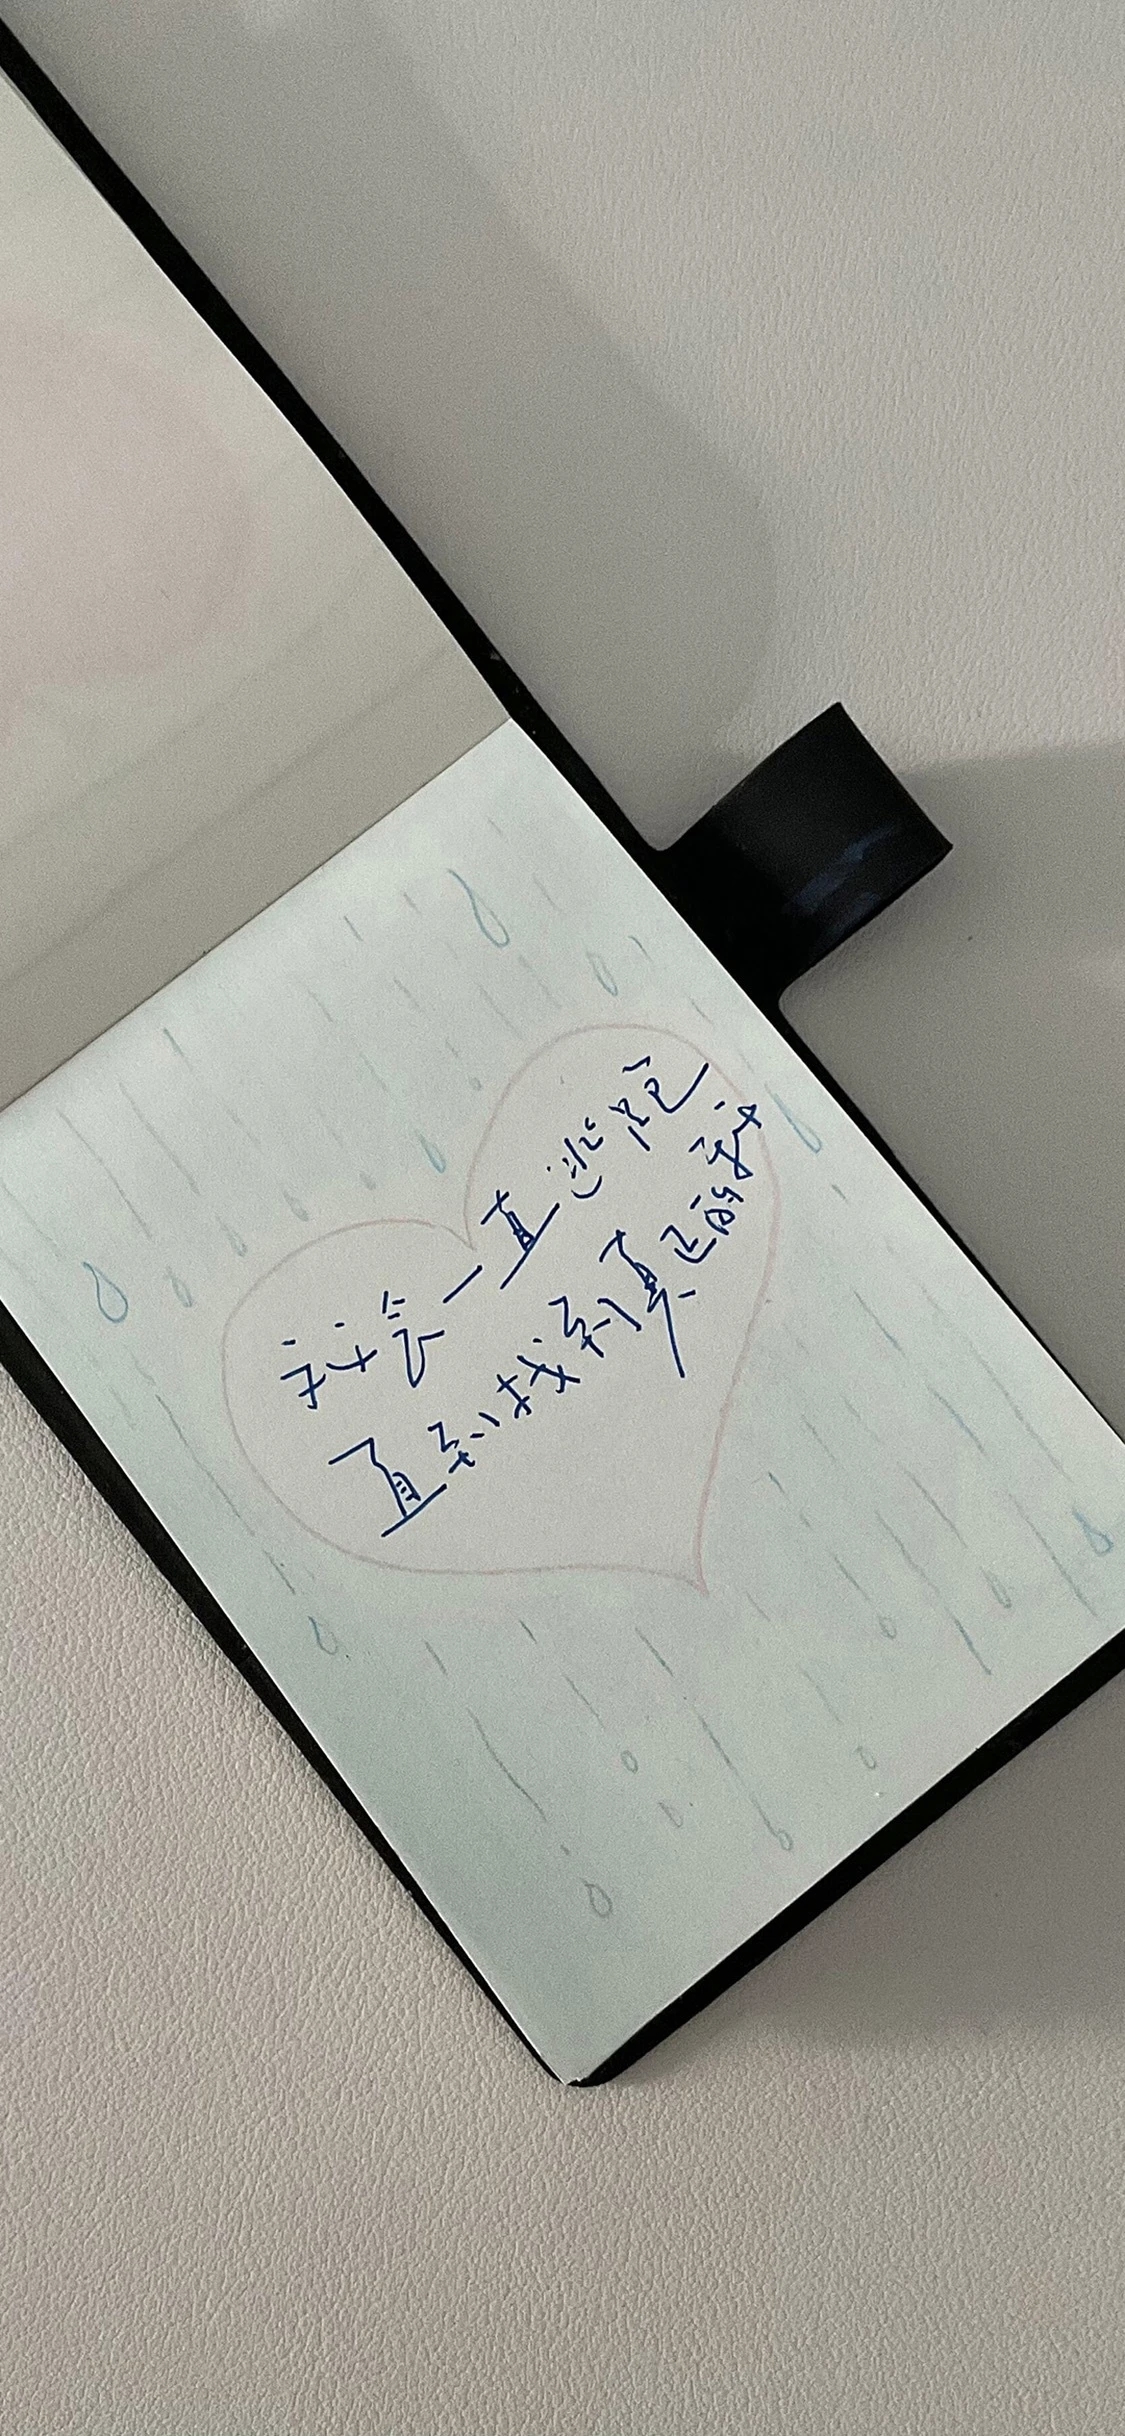 我会一直逃跑
直到找到真正的我